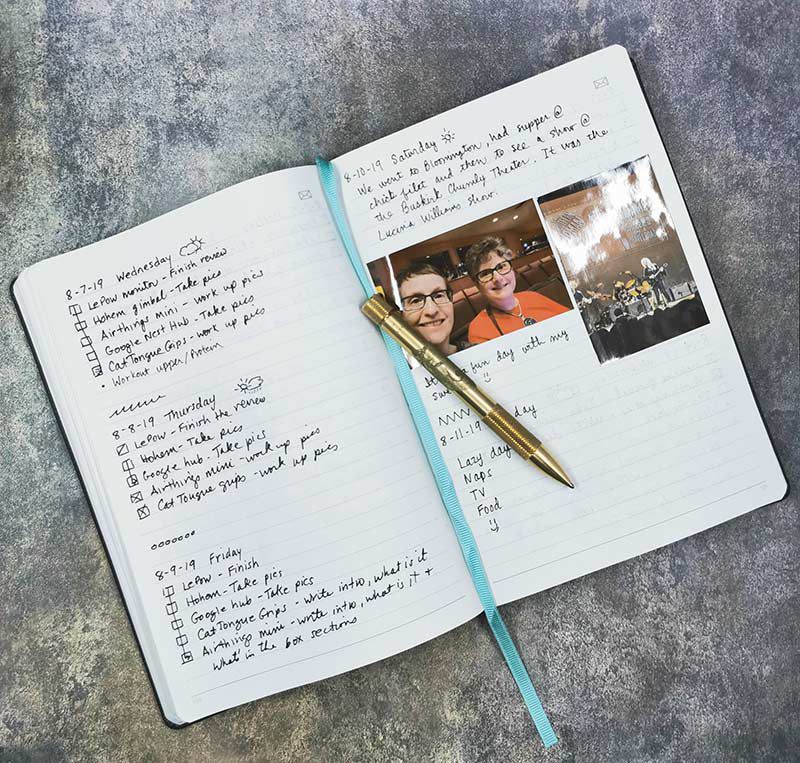 8-7-19 Wednesday
LePow monitor - Finish review
Hohem gimbal - Take pics
Airthings mini - work up pics
Google Nest Hub - Take pics
Cat Tongue Grips - work up pics
• Workout upper/Protein
8-8-19 Thursday
LePow - Finish the review
Hohem - Take pics
Google hub - Take pics
Airthings mini - work up pics
Cat Tongue grips - work up pics
8-9-19 Friday
LePow - Finish
Hohem - Take pics
Google hub - Take pics
Cat Tongue Grips - write intro, what is it
Airthings mini - write intro, what is it +
What's in the box sections
8-10-19 Saturday
We went to Bloomington, had supper @
chick filet and then to see a show @
the Buskirk Chumly Theater. It was the
Lucina Williams show.
It a fun day with my
swe
8-11-19 day
Lazy day
Naps
TV
Food